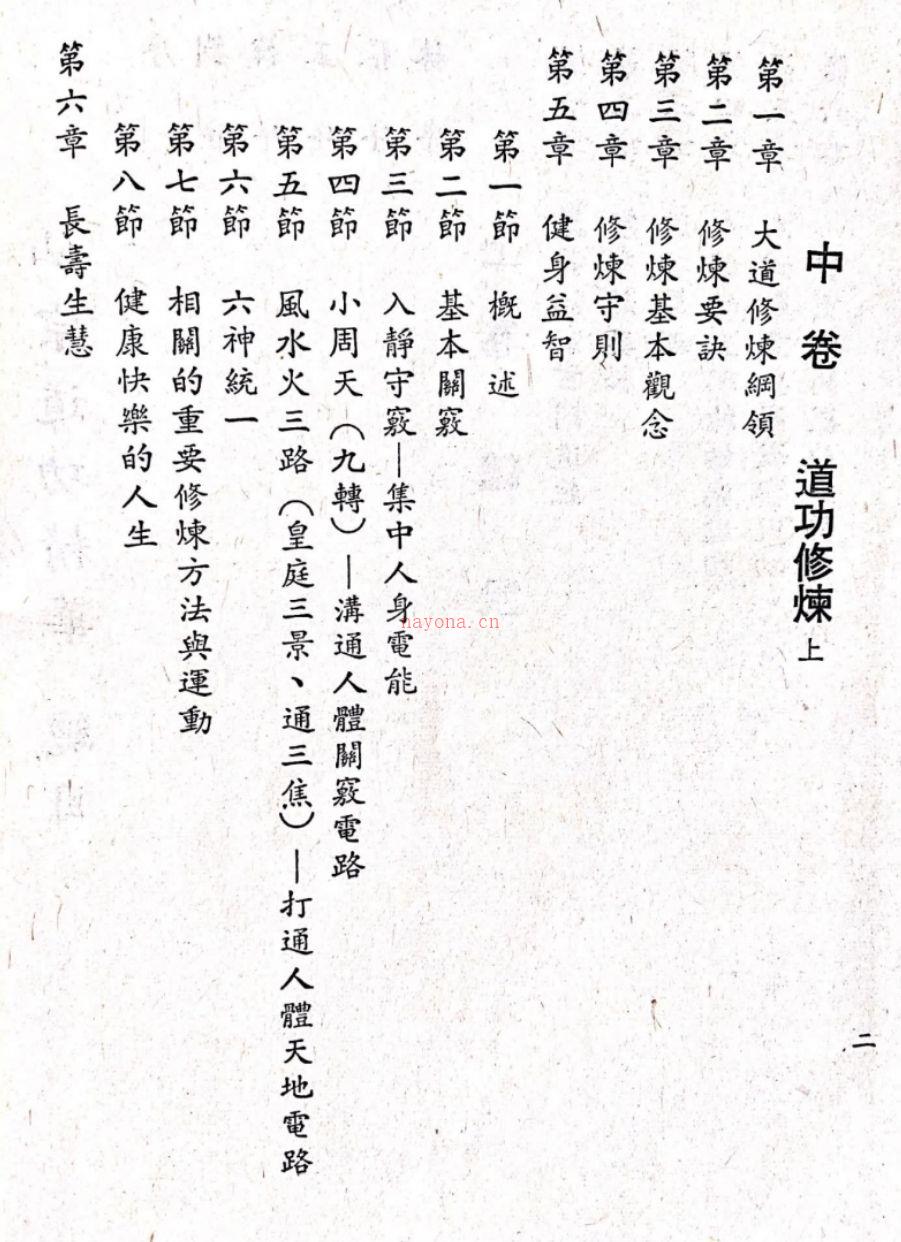 中卷 道功修煉 上
第一章 大道修煉綱領
第二章 修煉要訣
第三章 修煉基本觀念
第四章 修煉守則
第五章 健身益智
第一節 概述
第二節 基本關竅
第三節 入靜守竅—集中人身電能
第四節 小周天(九轉)—溝通人體關竅電路
第五節 風水火三路(皇庭三景、通三焦)—打通人體天地電路
第六節 六神統一
第七節 相關的重要修煉方法與運動
第八節 健康快樂的人生
第六章 長壽生慧
二
nayona.cn